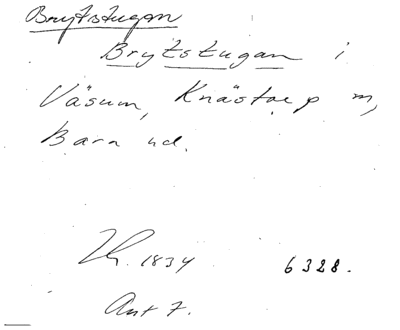 Brytstugan
Brytstugan i
Väsum, Knästorp m,
Bara hd.
Th. 1834 6328.
Ant 7.